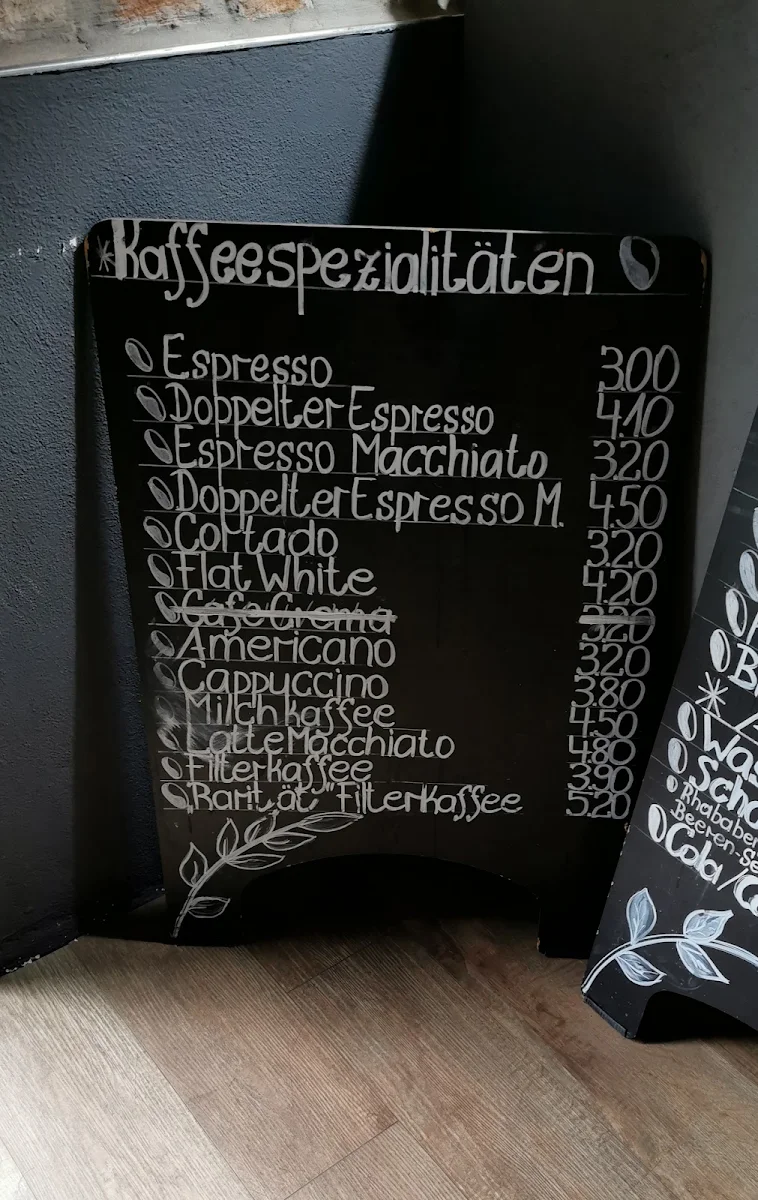 *Kaffeespezialitäten
Espresso 3.00
Doppelter Espresso 4.10
Espresso Macchiato 3.20
Doppelter Espresso M. 4.50
Cortado 3.20
Flat White 4.20
Cafe Crema 3.20
Americano 3.20
Cappuccino 3.80
Milchkaffee 4.50
Latte Macchiato 4.80
Filterkaffee 3.90
"Rarität" Filterkaffee 5.20
Rhababer
Beeren-
Cola/